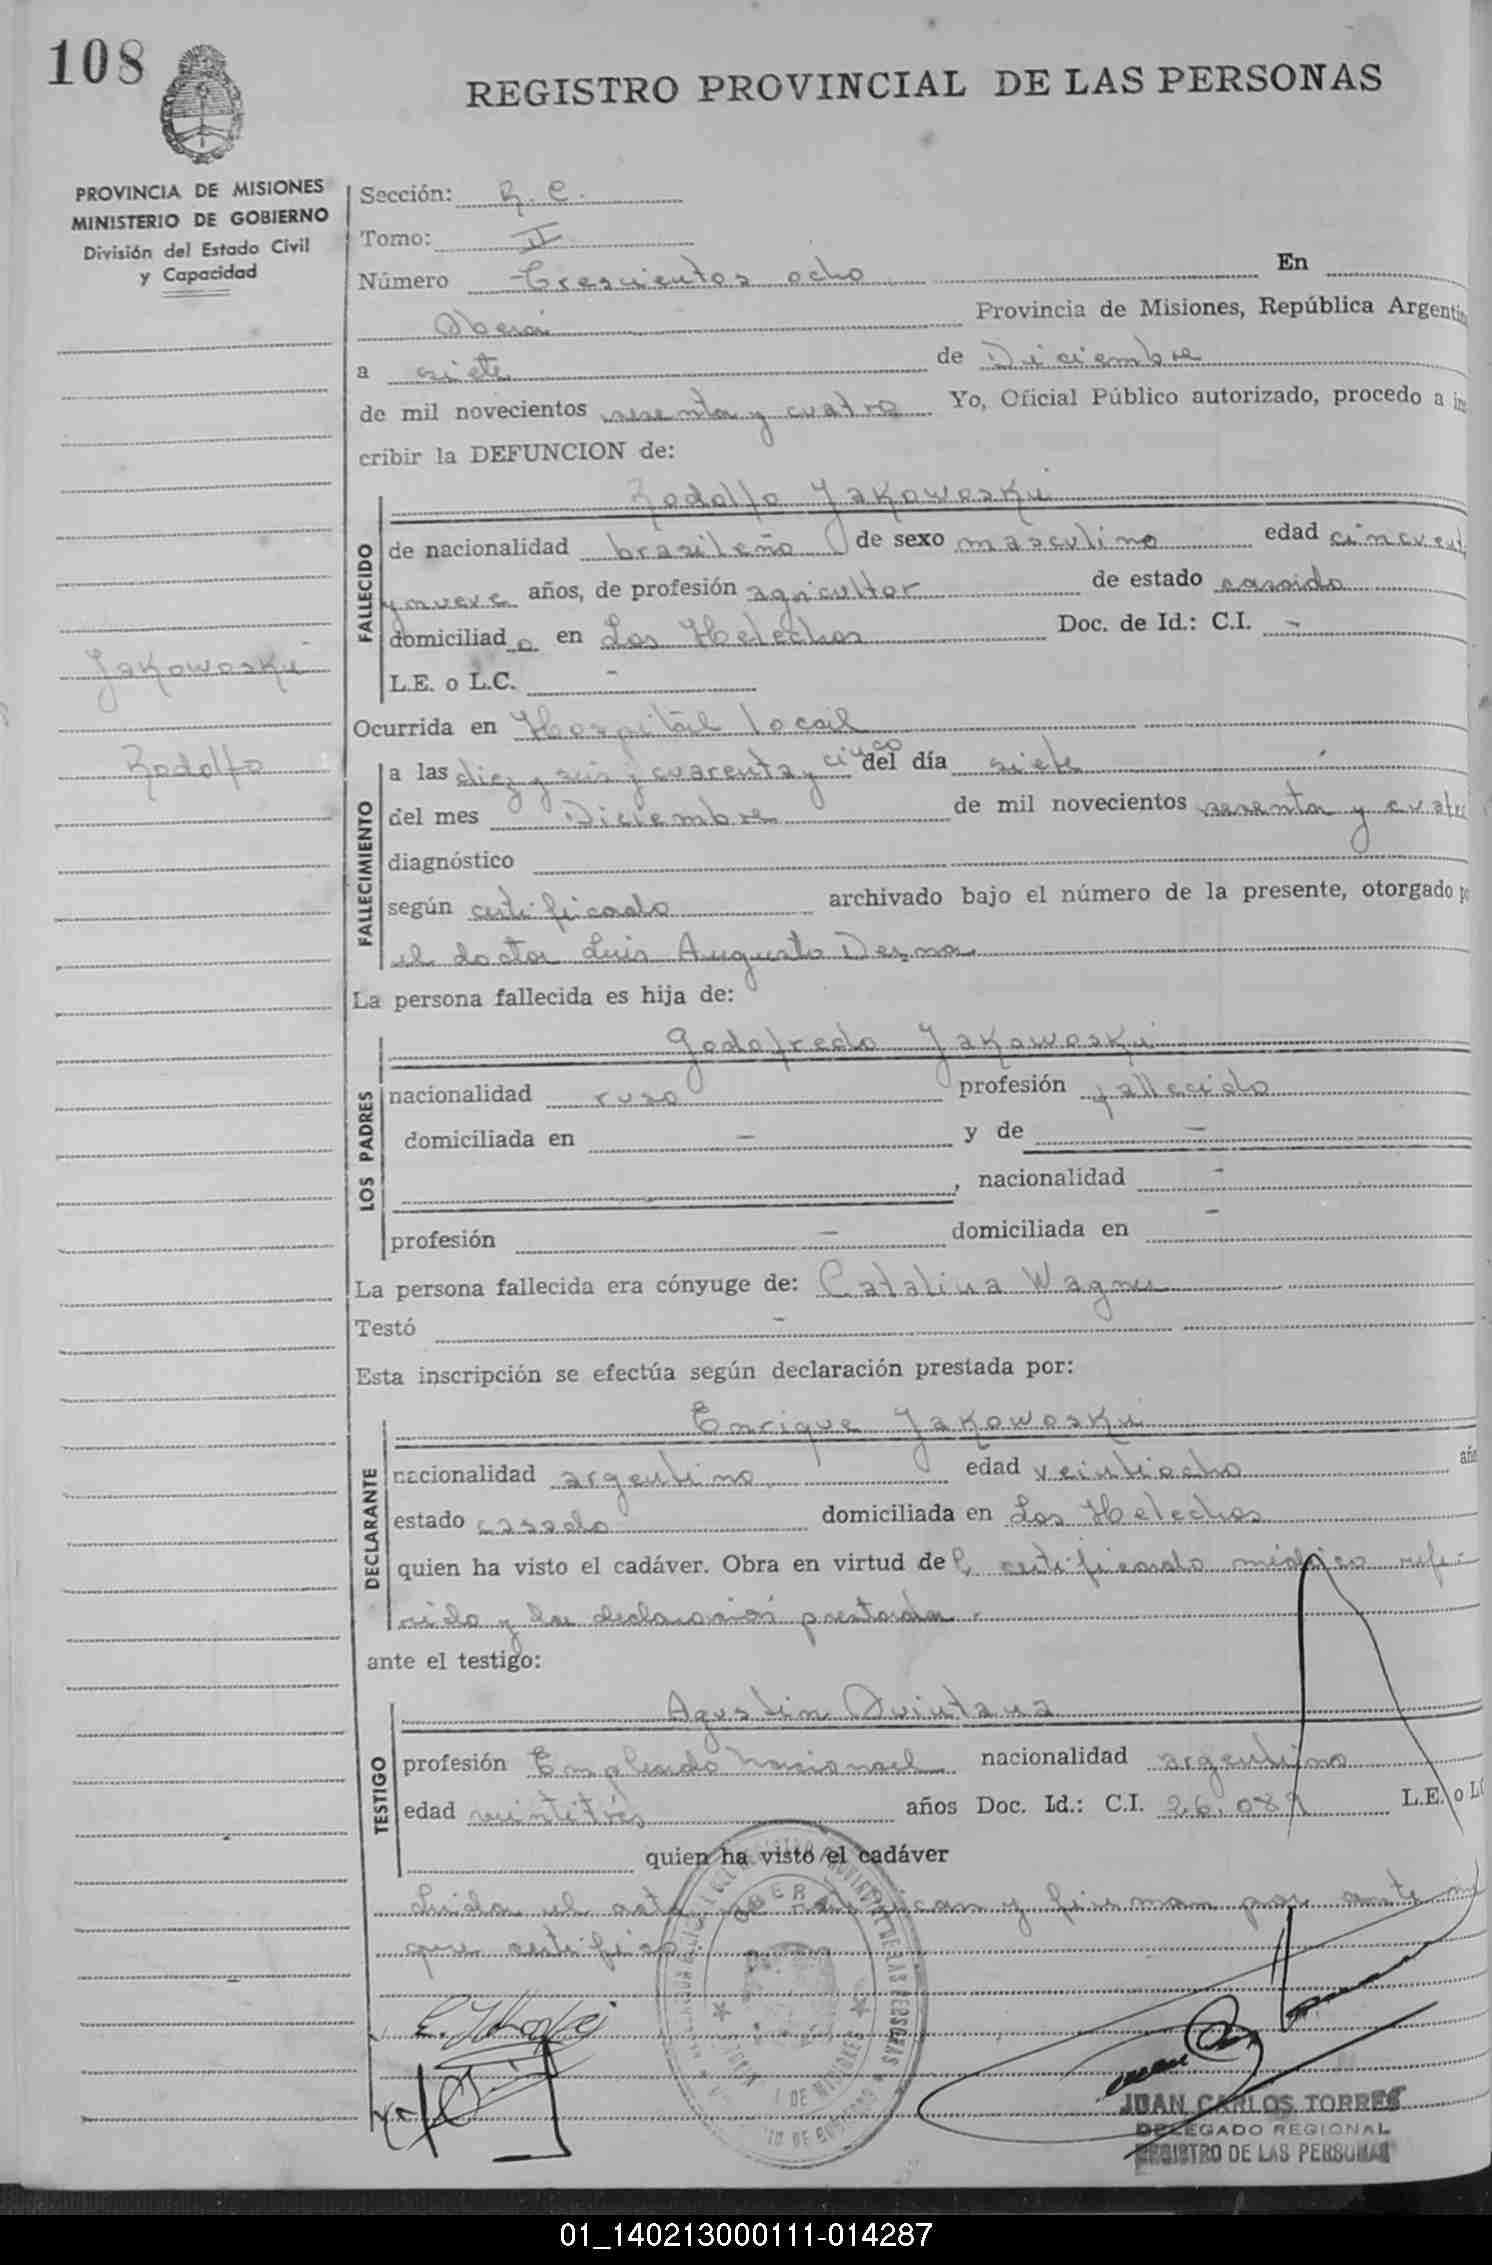 108
REGISTRO PROVINCIAL DE LAS PERSONAS
PROVINCIA DE MISIONES
MINISTERIO DE GOBIERNO
División del Estado Civil
y Capacidad
Sección: R. C.
Tomo: II
Número Trescientos ocho En
Oberá Provincia de Misiones, República Argentin
a siete de Diciembre
de mil novecientos sesenta y cuatro Yo, Oficial Público autorizado, procedo a ins
cribir la DEFUNCION de:
Rodolfo Jakowoski
FALLECIDO
de nacionalidad brasileño de sexo masculino edad cincuent
y nueve años, de profesión agricultor de estado casado
domiciliado en Los Helechos Doc. de Id.: C.I. -
L.E. o L.C. -
Jakowoski
Rodolfo
Ocurrida en Hospital local
FALLECIMIENTO
a las diez y seis y cuarenta y cinco del día siete
del mes Diciembre de mil novecientos sesenta y cuatro
diagnóstico
según certificado archivado bajo el número de la presente, otorgado po
el doctor Luis Augusto
La persona fallecida es hija de:
Godofredo Jakowoski
LOS PADRES
nacionalidad ruso profesión fallecido
domiciliada en - y de -
, nacionalidad -
profesión - domiciliada en -
La persona fallecida era cónyuge de: Catalina Wagner
Testó -
Esta inscripción se efectúa según declaración prestada por:
Enrique Jakowoski
DECLARANTE
nacionalidad argentino edad veintiocho añ
estado casado domiciliada en Los Helechos
quien ha visto el cadáver. Obra en virtud del certificado médico refe-
rido y la declaración prestada.
ante el testigo:
Agustin Quintana
TESTIGO
profesión Empleado Nacional nacionalidad argentino
edad veintitrés años Doc. Id.: C.I. 26.089 L.E. o LC
quien ha visto el cadáver
Leida el acta ratifican y firman por ante mi
que certifico
OBERA
JUAN CARLOS TORRES
DELEGADO REGIONAL
REGISTRO DE LAS PERSONAS
01_140213000111-014287